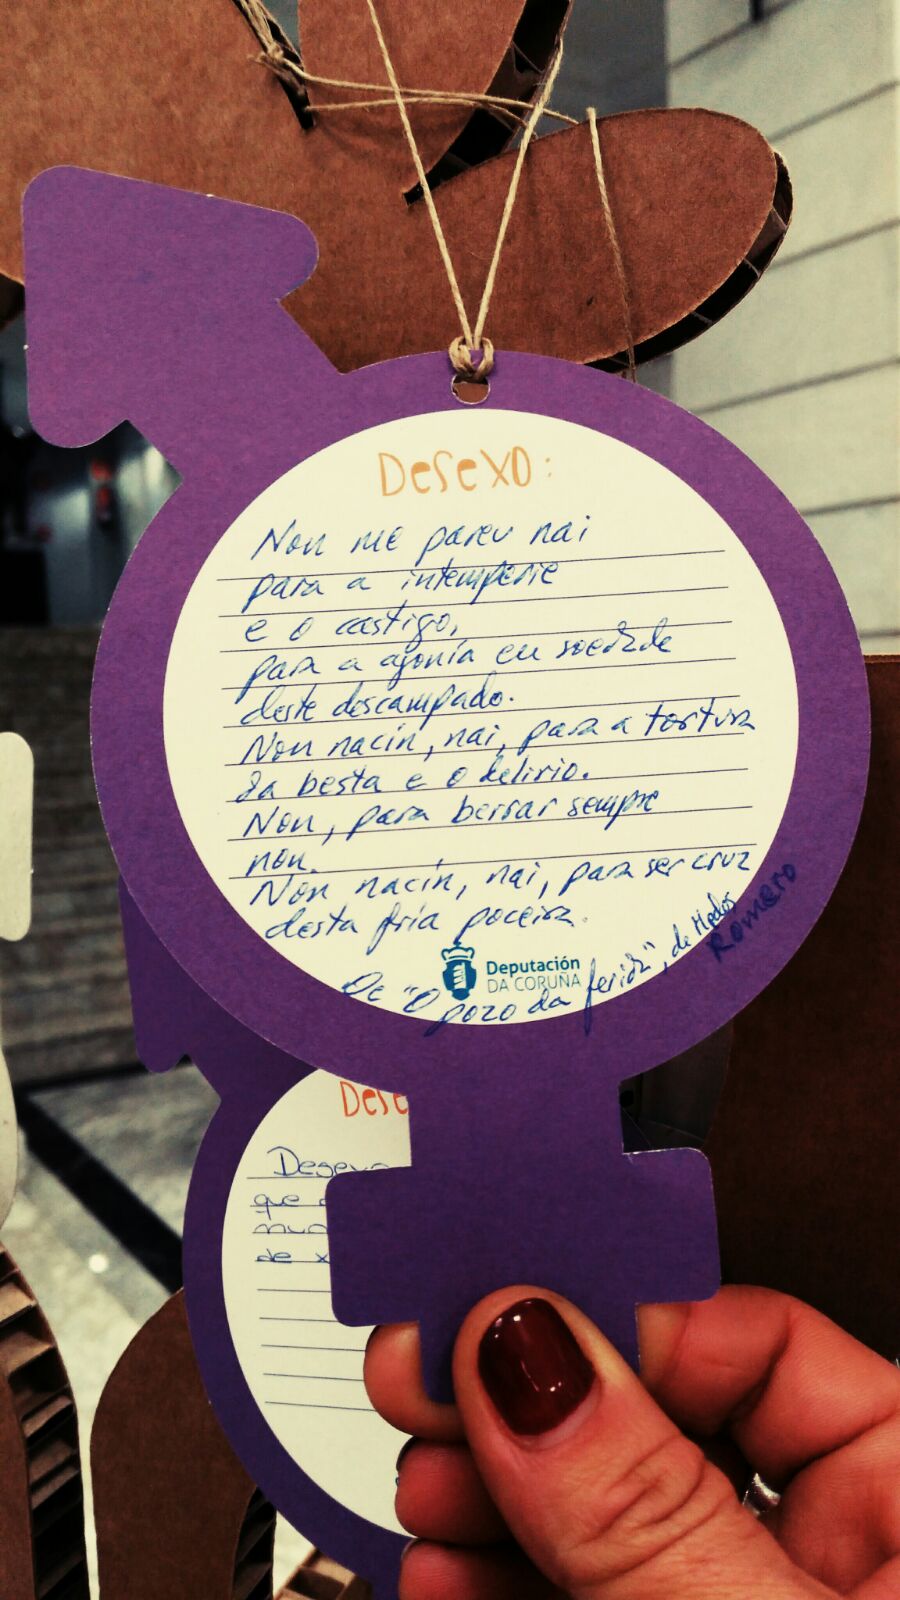 Desexo:
Non me pareu nai
para a intemperie
e o castigo,
para a agonía en soedade
deste descampado.
Non nacín, nai, para a tortura
da besta e o delirio.
Non, para berrar sempre
non.
Non nacín, nai, para ser cruz
desta fría poceira.
Deputación
DA CORUÑA
De "O pozo da ferida", de Medos
Romero
Dese
Desexo
que
mun
de x